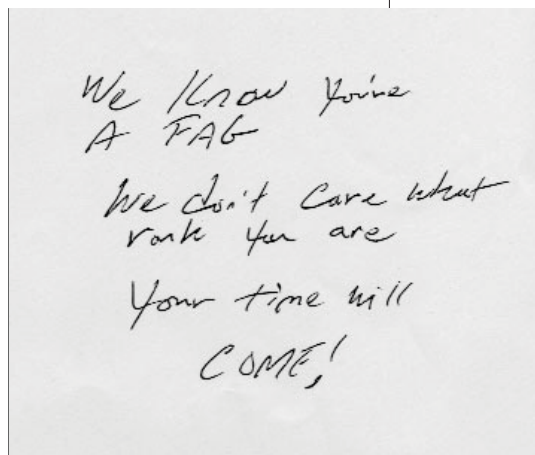 We Know You're
A FAG
We don't care what
rank you are
Your time will
COME!